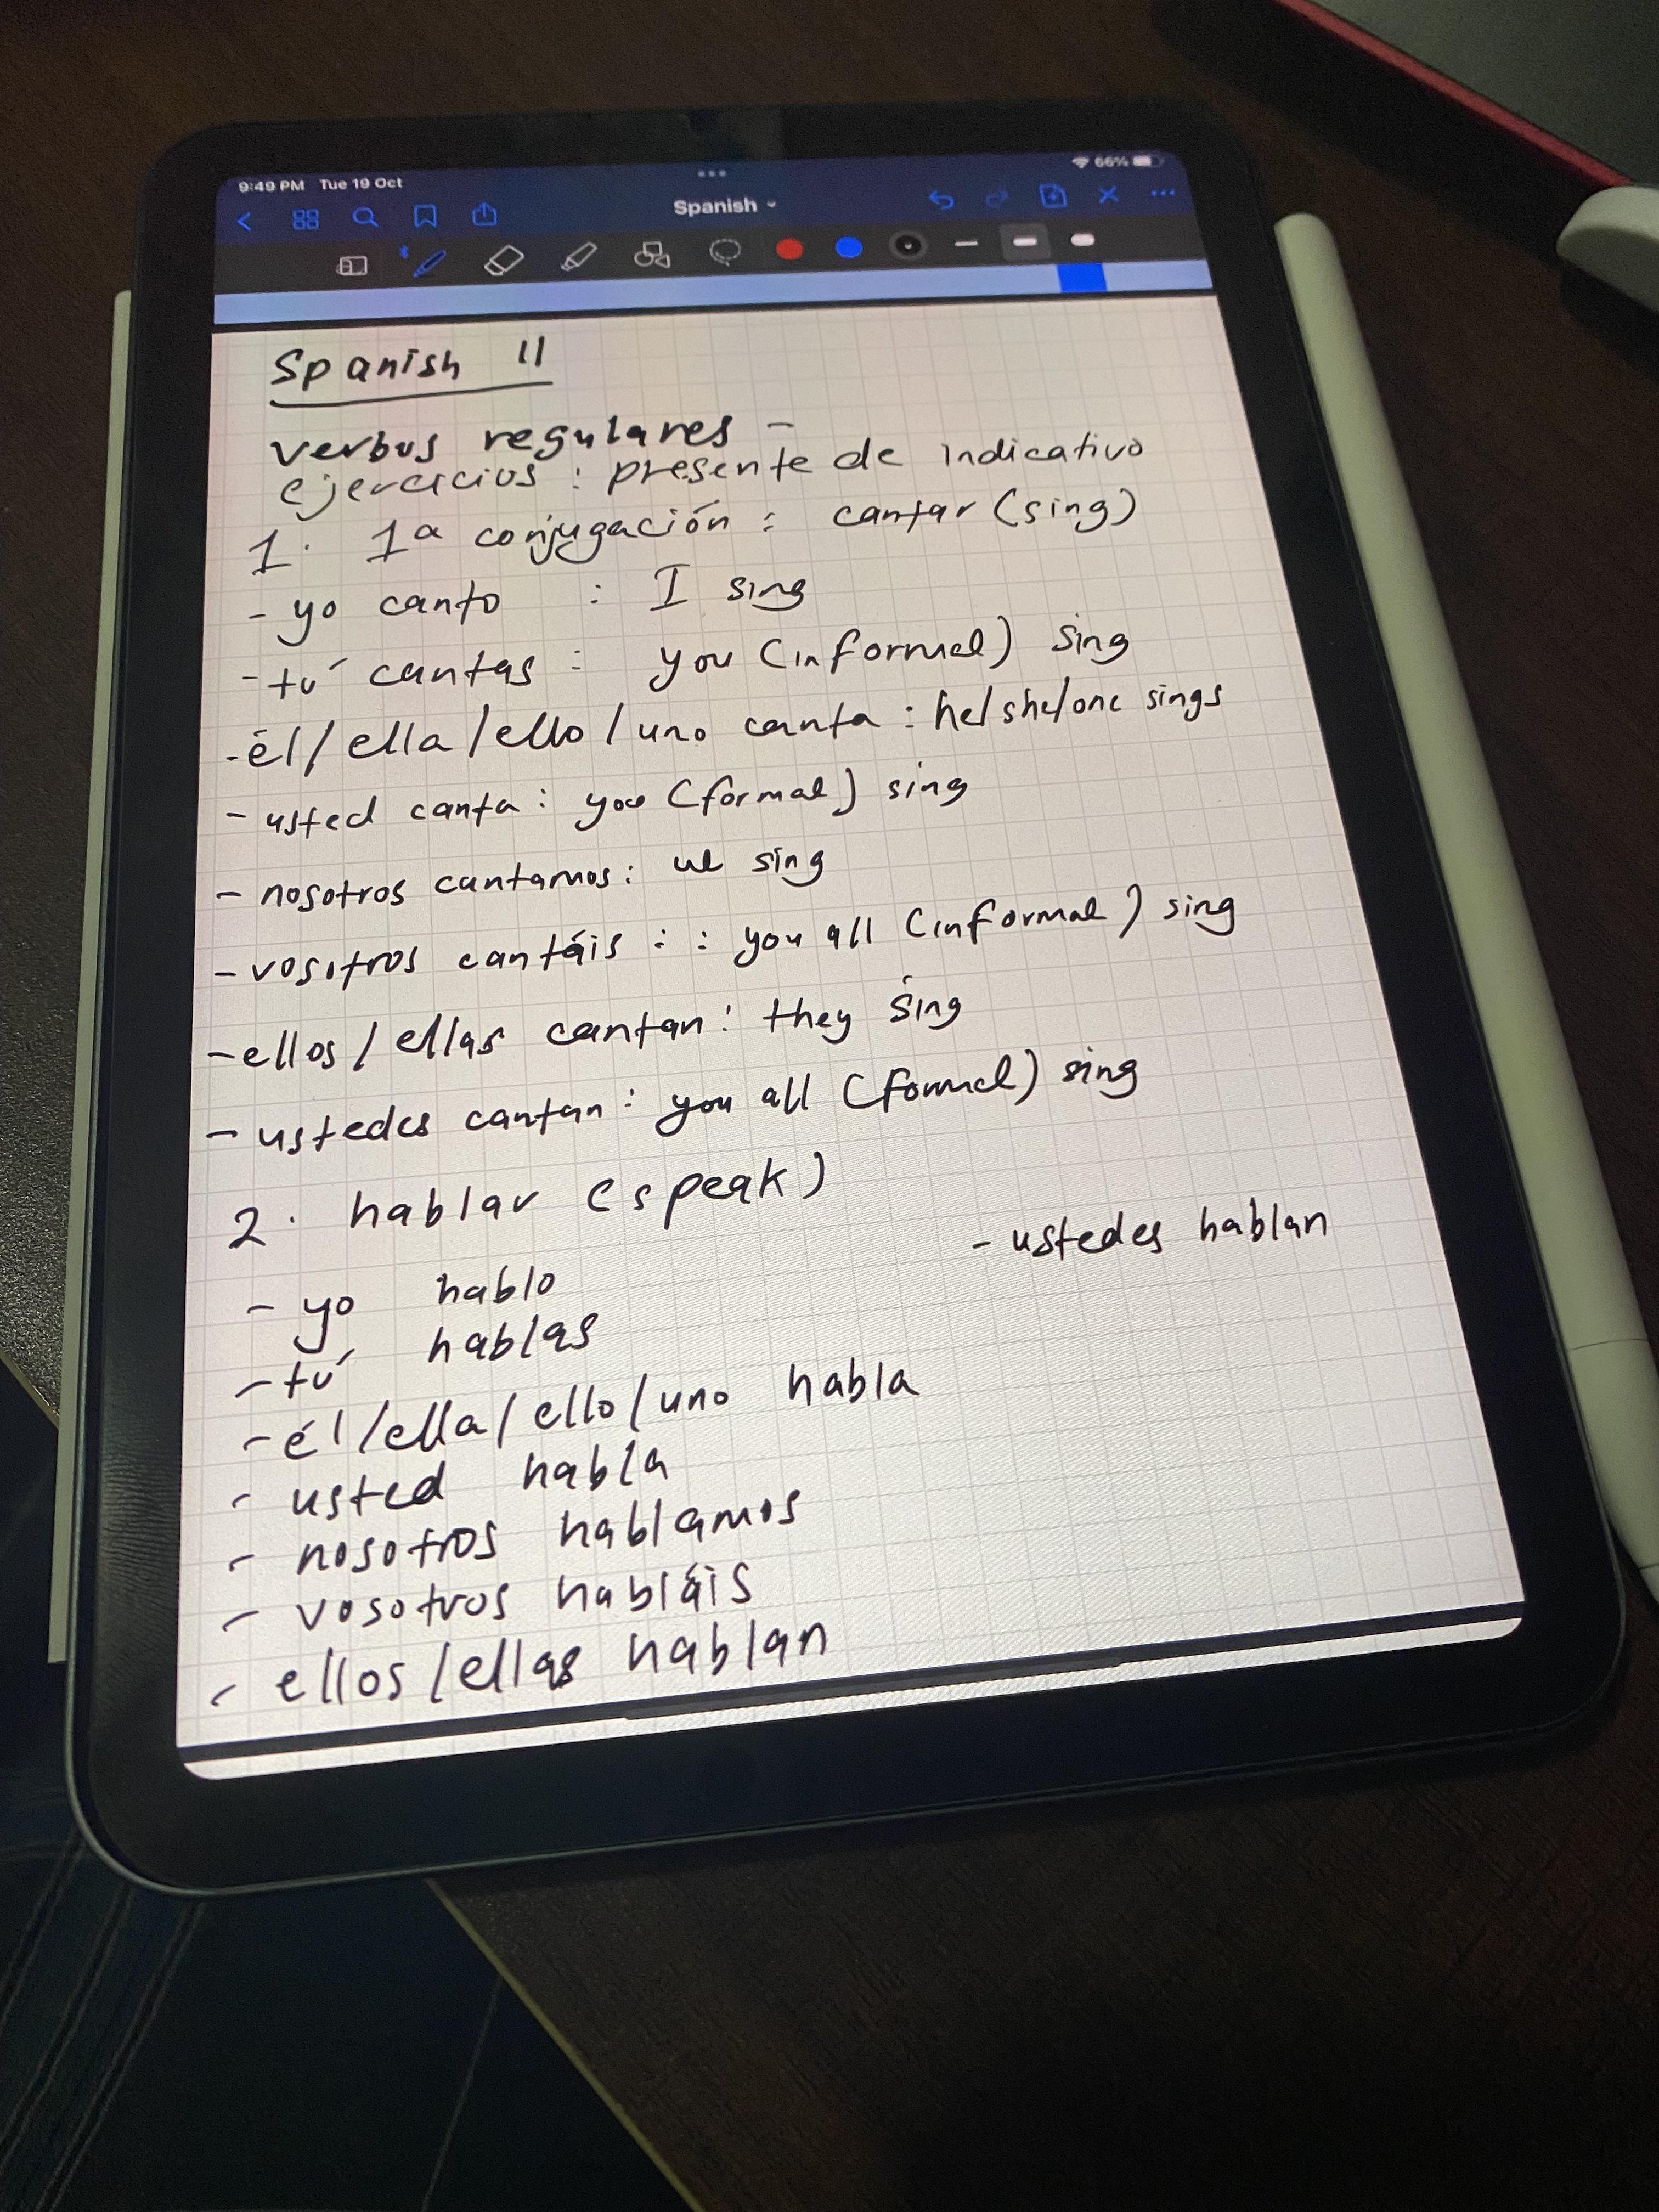 9:49 PM Tue 19 Oct
66%
Spanish
Spanish II
verbos regulares -
ejercicios : presente de indicativo
1. 1a conjugación : cantar (sing)
- yo canto : I sing
- tú cantas : you (informal) sing
- él/ella/ello/uno canta : he/she/one sings
- usted canta : you (formal) sing
- nosotros cantamos : we sing
- vosotros cantáis : : you all (informal) sing
- ellos/ellas cantan : they sing
- ustedes cantan : you all (formal) sing
2. hablar (speak)
- yo hablo
- tú hablas
- él/ella/ello/uno habla
- usted habla
- nosotros hablamos
- vosotros habláis
- ellos/ellas hablan
- ustedes hablan